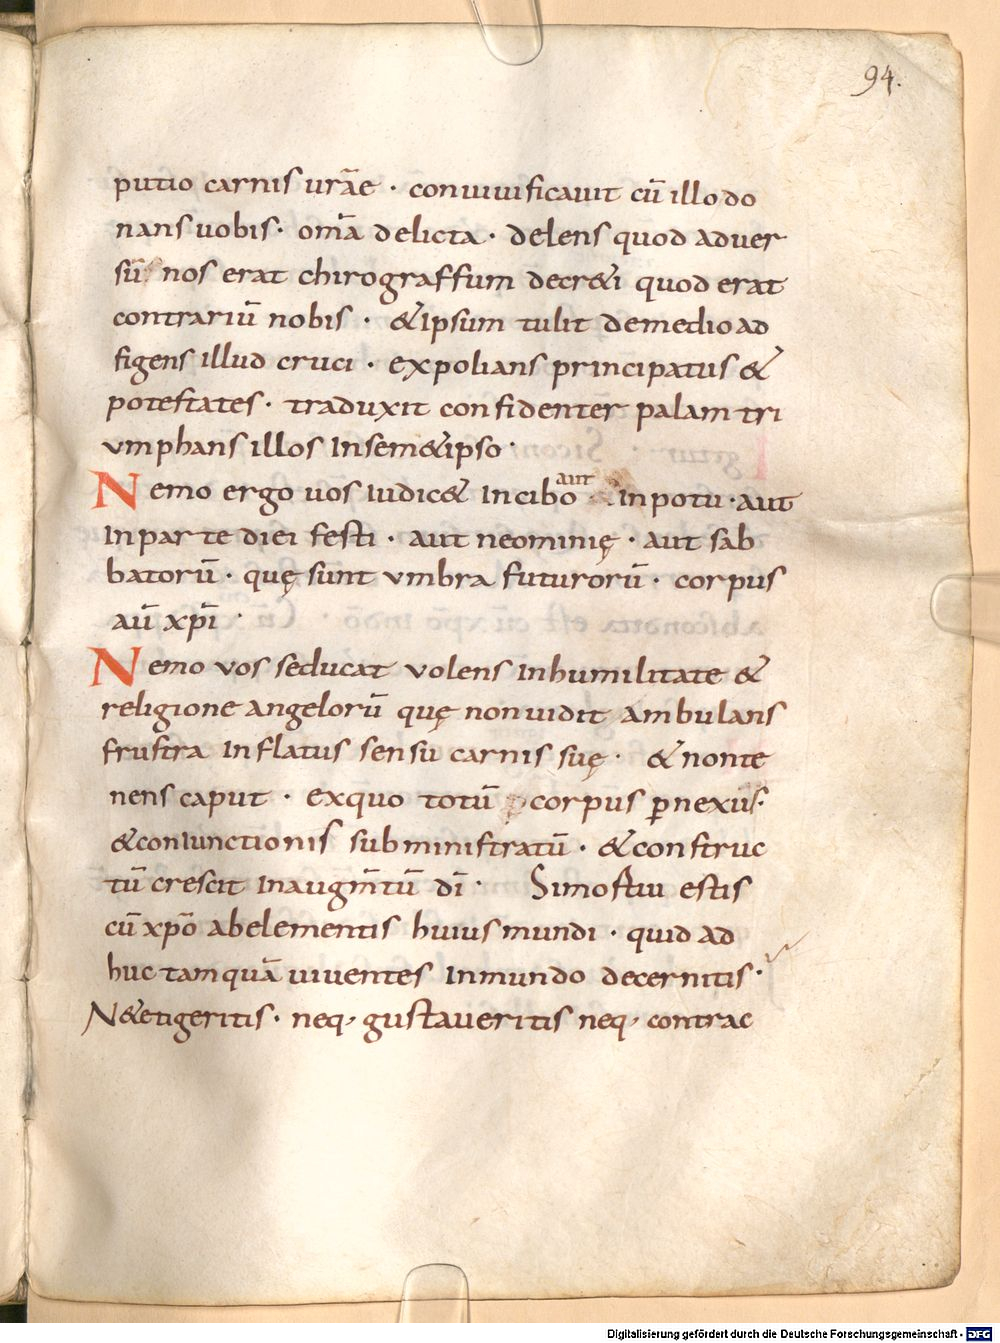 94.
putio carnis urāe · conuiuificauit cū illo do
nans uobis · om̄a delicta · delens quod aduer
sū nos erat chirograffum decr&i quod erat
contrariū nobis · &ipsum tulit demedio ad
figens illud cruci · expolians principatus &
potestates · traduxit confidenter palam tri
vmphans illos Insem&ipso ·
Nemo ergo uos Iudic& Incibo aut Inpotu · aut
Inparte diei festi · aut neominię · aut sab
batorū · quę sunt vmbra futurorū · corpus
aū xp̄i ·
Nemo vos seducat volens Inhumilitate &
religione angelorū quę nonuidit ambulans
frustra Inflatus sensu carnis suę · & nonte
nens caput · exquo totū corpus ꝑnexus ·
&coniunctionis subministratū · &construc
tū crescit Inaugm̄tū dī · Simostui estis
cū xp̄o abelementis huius mundi · quid ad
huc tamquā uiuentes Inmundo decernitis ·
N&etigeritis · neq, gustaueritis neq, contrac
Digitalisierung gefördert durch die Deutsche Forschungsgemeinschaft - DFG